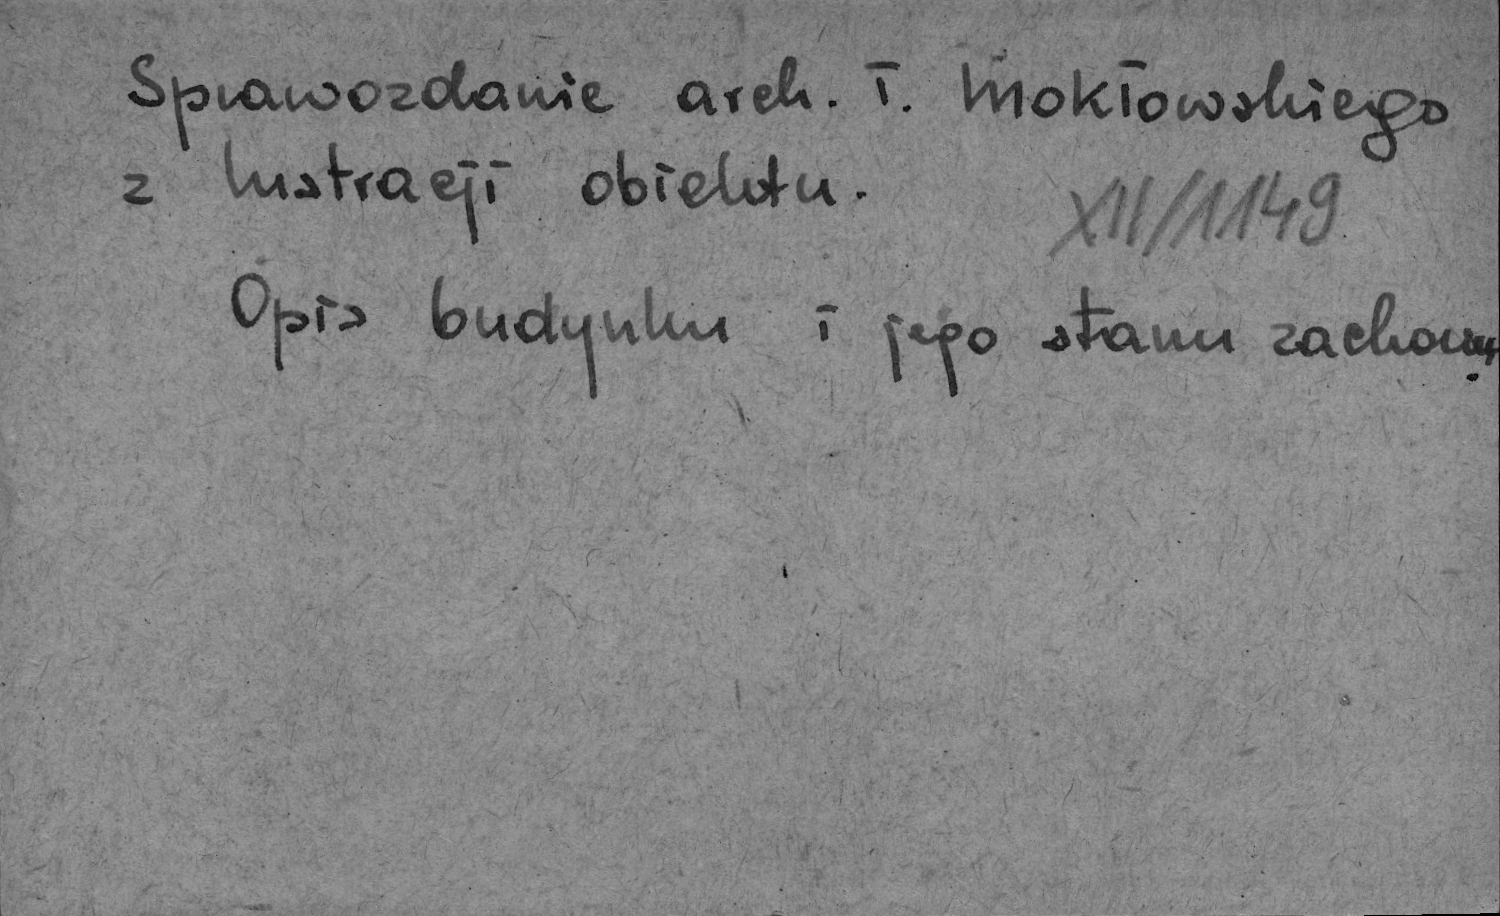 Sprawozdanie arch. T. Mokłowskiego
z lustracji obiektu.
XII/1149
Opis budynku i jego stanu